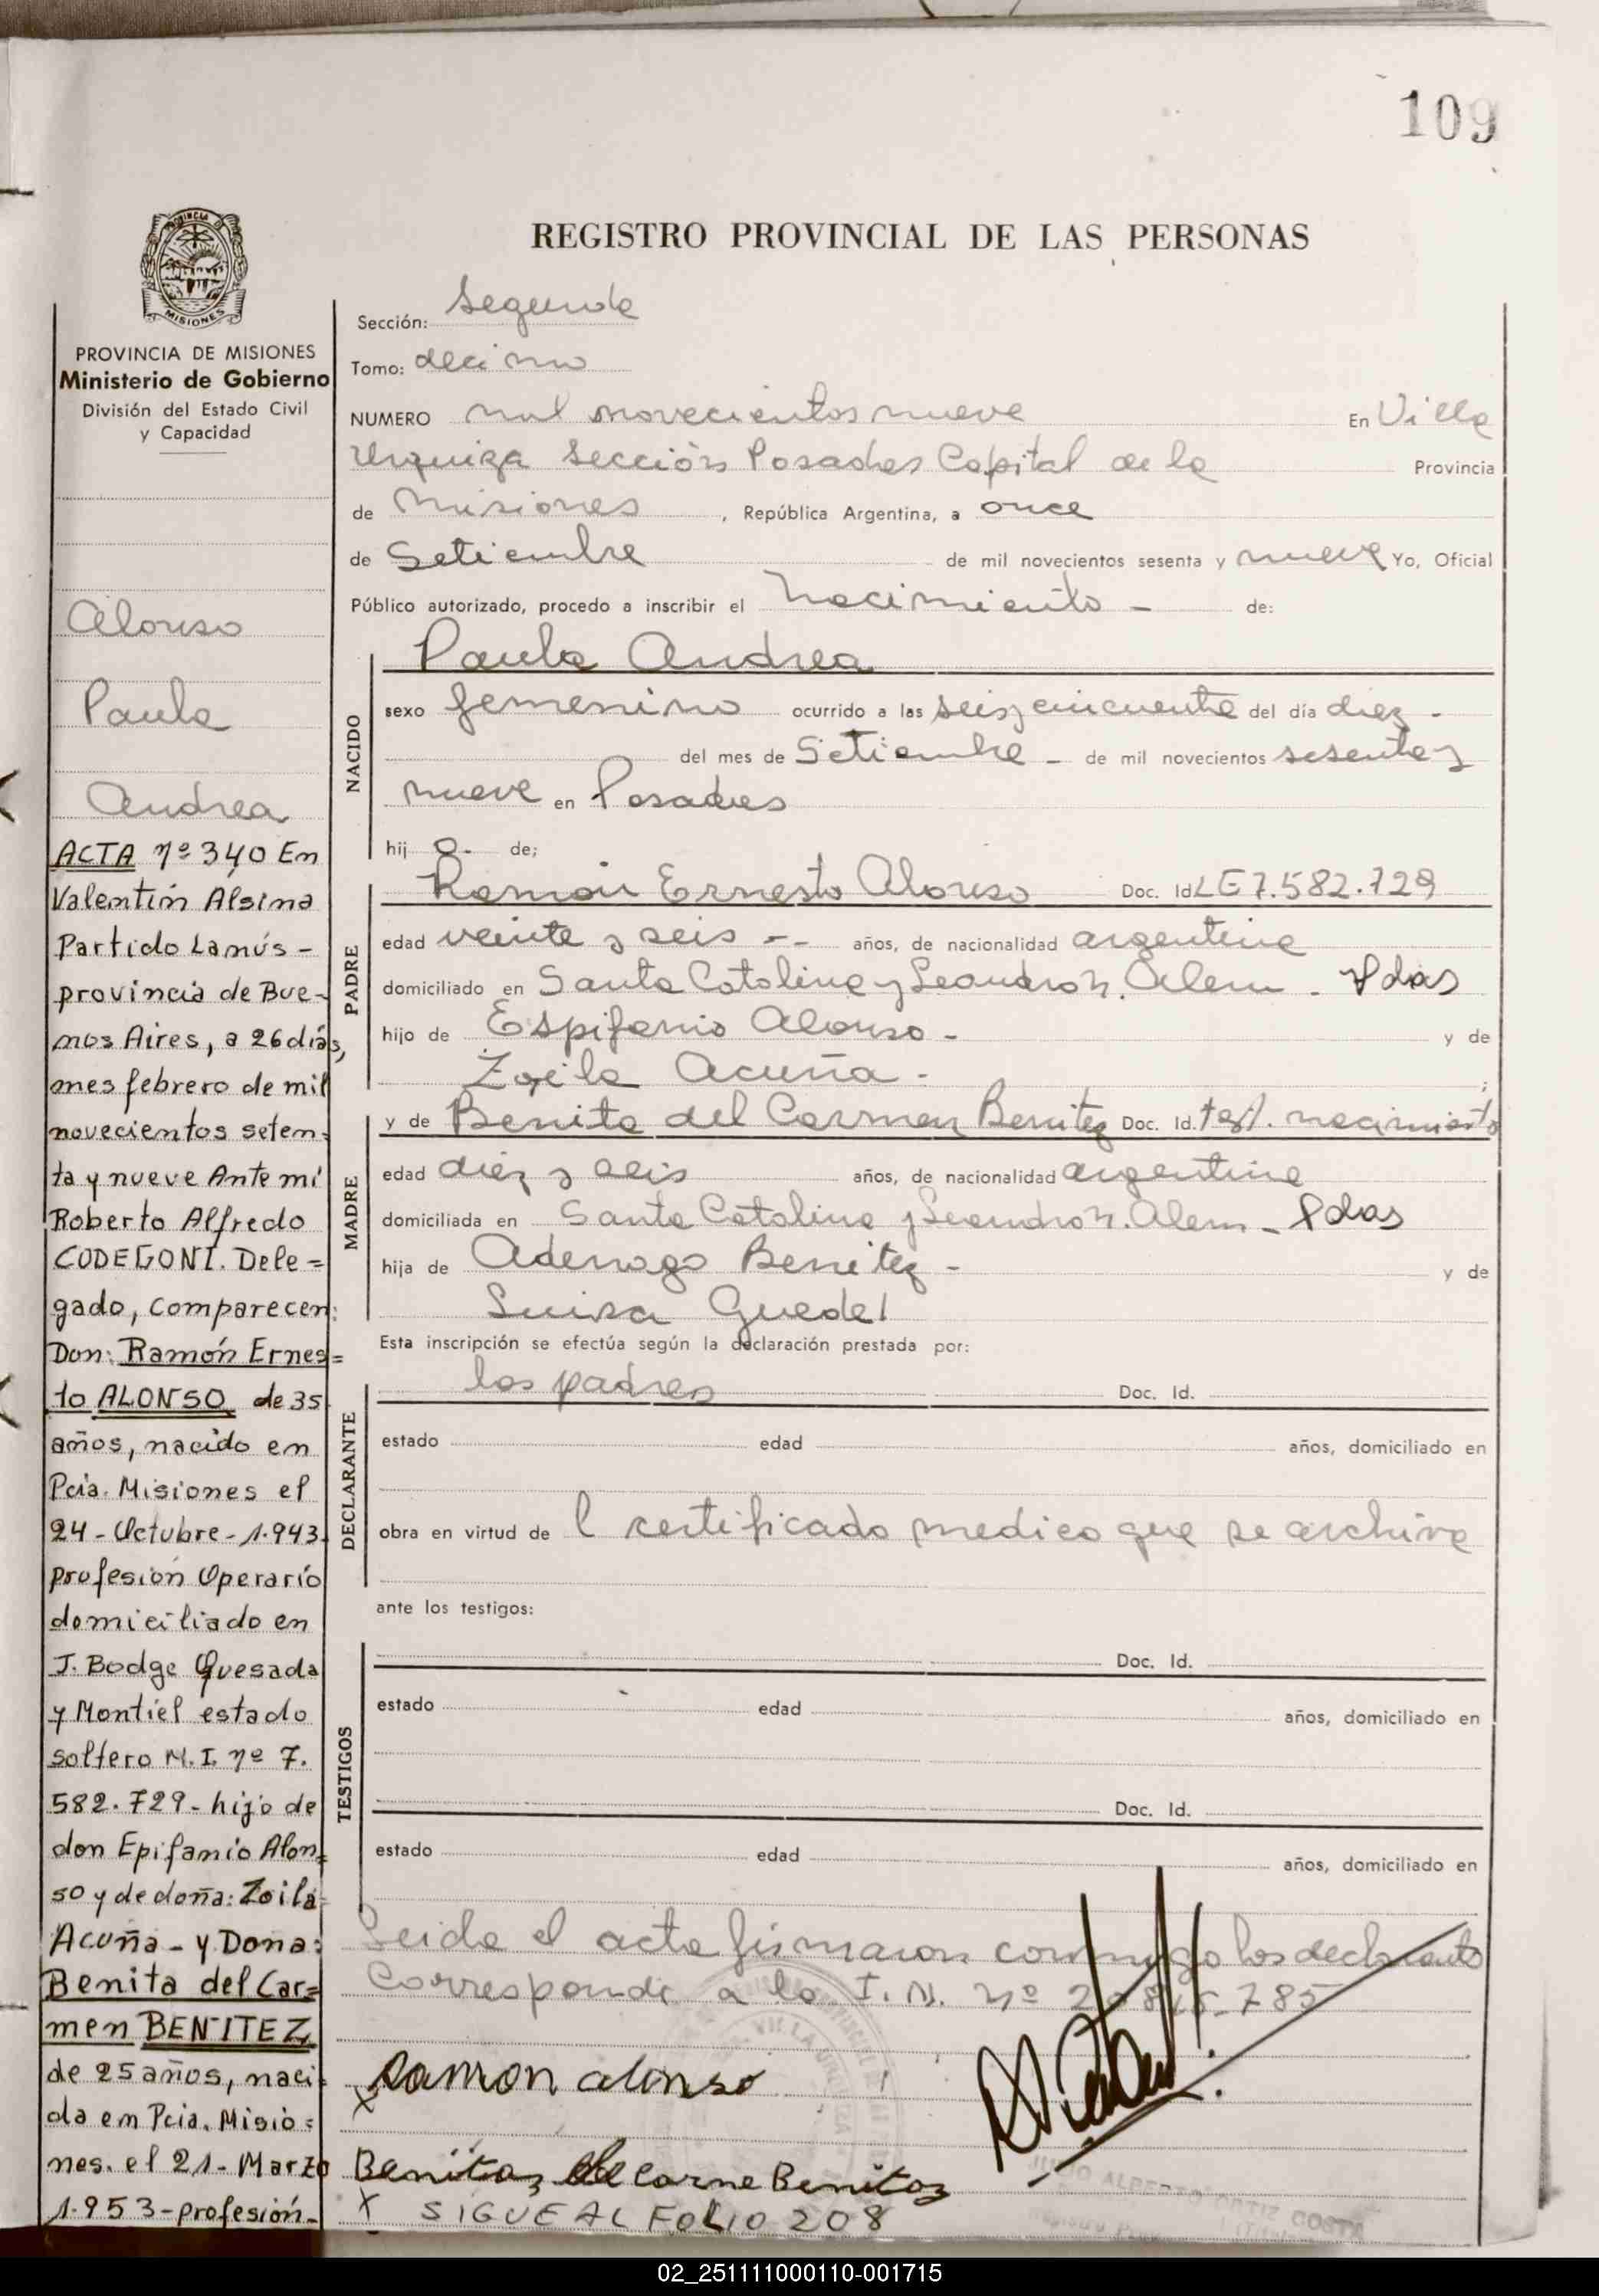 109
REGISTRO PROVINCIAL DE LAS PERSONAS
MISIONES
PROVINCIA DE MISIONES
Ministerio de Gobierno
División del Estado Civil
y Capacidad
Alonso
Paula
Andrea
ACTA nº 340 En
Valentín Alsina
Partido Lanús -
provincia de Bue-
nos Aires, a 26 días,
mes febrero de mil
novecientos seten-
ta y nueve Ante mí
Roberto Alfredo
CODEGONI. Dele=
gado, comparecen:
Don: Ramón Ernes=
to ALONSO de 35
años, nacido en
Pcia. Misiones el
24 - Octubre - 1.943
profesión Operario
domiciliado en
J. Bodge Quesada
y Montiel estado
soltero M.I. nº 7.
582.729 - hijo de
don Epifanio Alon=
so y de doña: Zoila
Acuña - y Dona:
Benita del Car=
men BENITEZ
de 25 años, naci=
da en Pcia. Misio=
nes. el 21 - Marzo
1.953 - profesión -
Sección: Segunda
Tomo: decimo
NUMERO mil novecientos nueve En Villa
Urquiza Sección Posadas Capital de la Provincia
de Misiones , República Argentina, a once
de Setiembre de mil novecientos sesenta y nueve Yo, Oficial
Público autorizado, procedo a inscribir el Nacimiento - de:
NACIDO
Paula Andrea
sexo femenino ocurrido a las seis y cincuenta del día diez -
del mes de Setiembre - de mil novecientos sesenta y
nueve en Posadas
hij a - de;
PADRE
Ramón Ernesto Alonso Doc. Id LE 7.582.729
edad veinte y seis - - años, de nacionalidad argentina
domiciliado en Santa Catalina y Leandro N. Alem - Pdas
hijo de Espifanio Alonso - y de
Zoila Acuña - ;
MADRE
y de Benita del Carmen Benitez Doc. Id. test. nacimiento
edad diez y seis años, de nacionalidad argentina
domiciliada en Santa Catalina y Leandro N. Alem - Pdas
hija de Adenago Benitez - y de
Luisa Guedel
Esta inscripción se efectúa según la declaración prestada por:
DECLARANTE
los padres Doc. Id.
estado edad años, domiciliado en
obra en virtud de l certificado medico que se archiva
ante los testigos:
TESTIGOS
Doc. Id.
estado edad años, domiciliado en
Doc. Id.
estado edad años, domiciliado en
Leida el acta firmaron conmigo los declarante
Corresponde a la I.N. nº 20.815.785
Ramon alonso
Benitas del Carne Benitez
X SIGUE AL FOLIO 208
JULIO ALBERTO ORTIZ COSTA
02_251111000110-001715